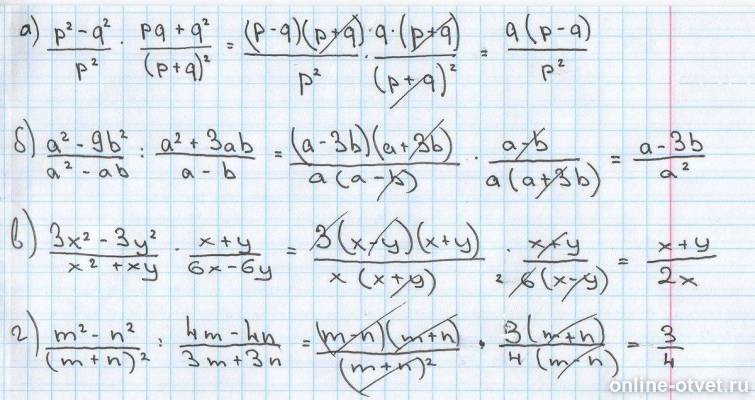 а) p² - q² / p² · pq + q² / (p+q)² = (p-q)(p+q) / p² · q·(p+q) / (p+q)² = q(p-q) / p²
б) a² - 9b² / a² - ab : a² + 3ab / a - b = (a-3b)(a+3b) / a(a-b) · a-b / a(a+3b) = a-3b / a²
в) 3x² - 3y² / x² + xy · x+y / 6x-6y = 3(x-y)(x+y) / x(x+y) · x+y / 2 6(x-y) = x+y / 2x
г) m² - n² / (m+n)² : 4m-4n / 3m+3n = (m-n)(m+n) / (m+n)² · 3(m+n) / 4(m-n) = 3 / 4
online-otvet.ru